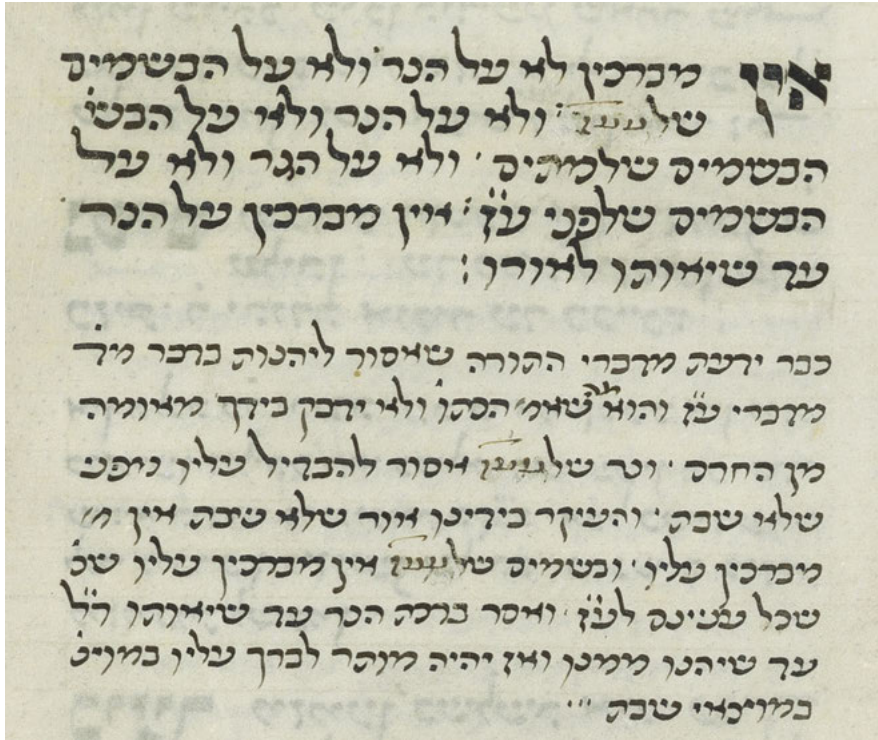 אין מברכין לא על הנר ולא על הבשמים
של ׃ ולא על הנר ולא על הבש׳
הבשמים שלמתים · ולא על הנר ולא על
הבשמים שלפני ע״ז ׃ אין מברכין על הנר
עד שיאותו לאורו ׃
כבר ידעת מדברי התורה שאסור ליהנות בדבר מד׳
מדברי ע״ז והוא מה שאמ׳ הכתו׳ ולא ידבק בידך מאומה
מן החרם · ונר של אסור להבדיל עליו מפני
שלא שבת · והעיקר בידינו אור שלא שבת אין מ׳
מברכין עליו · ובשמים של אין מברכין עליו שכ׳
שכל ענינם לע״ז · ואסר ברכת הנר עד שיאותו ר״ל
עד שיהנו ממנו ואז יהיה מותר לברך עליו במוצ׳
במוצאי שבת